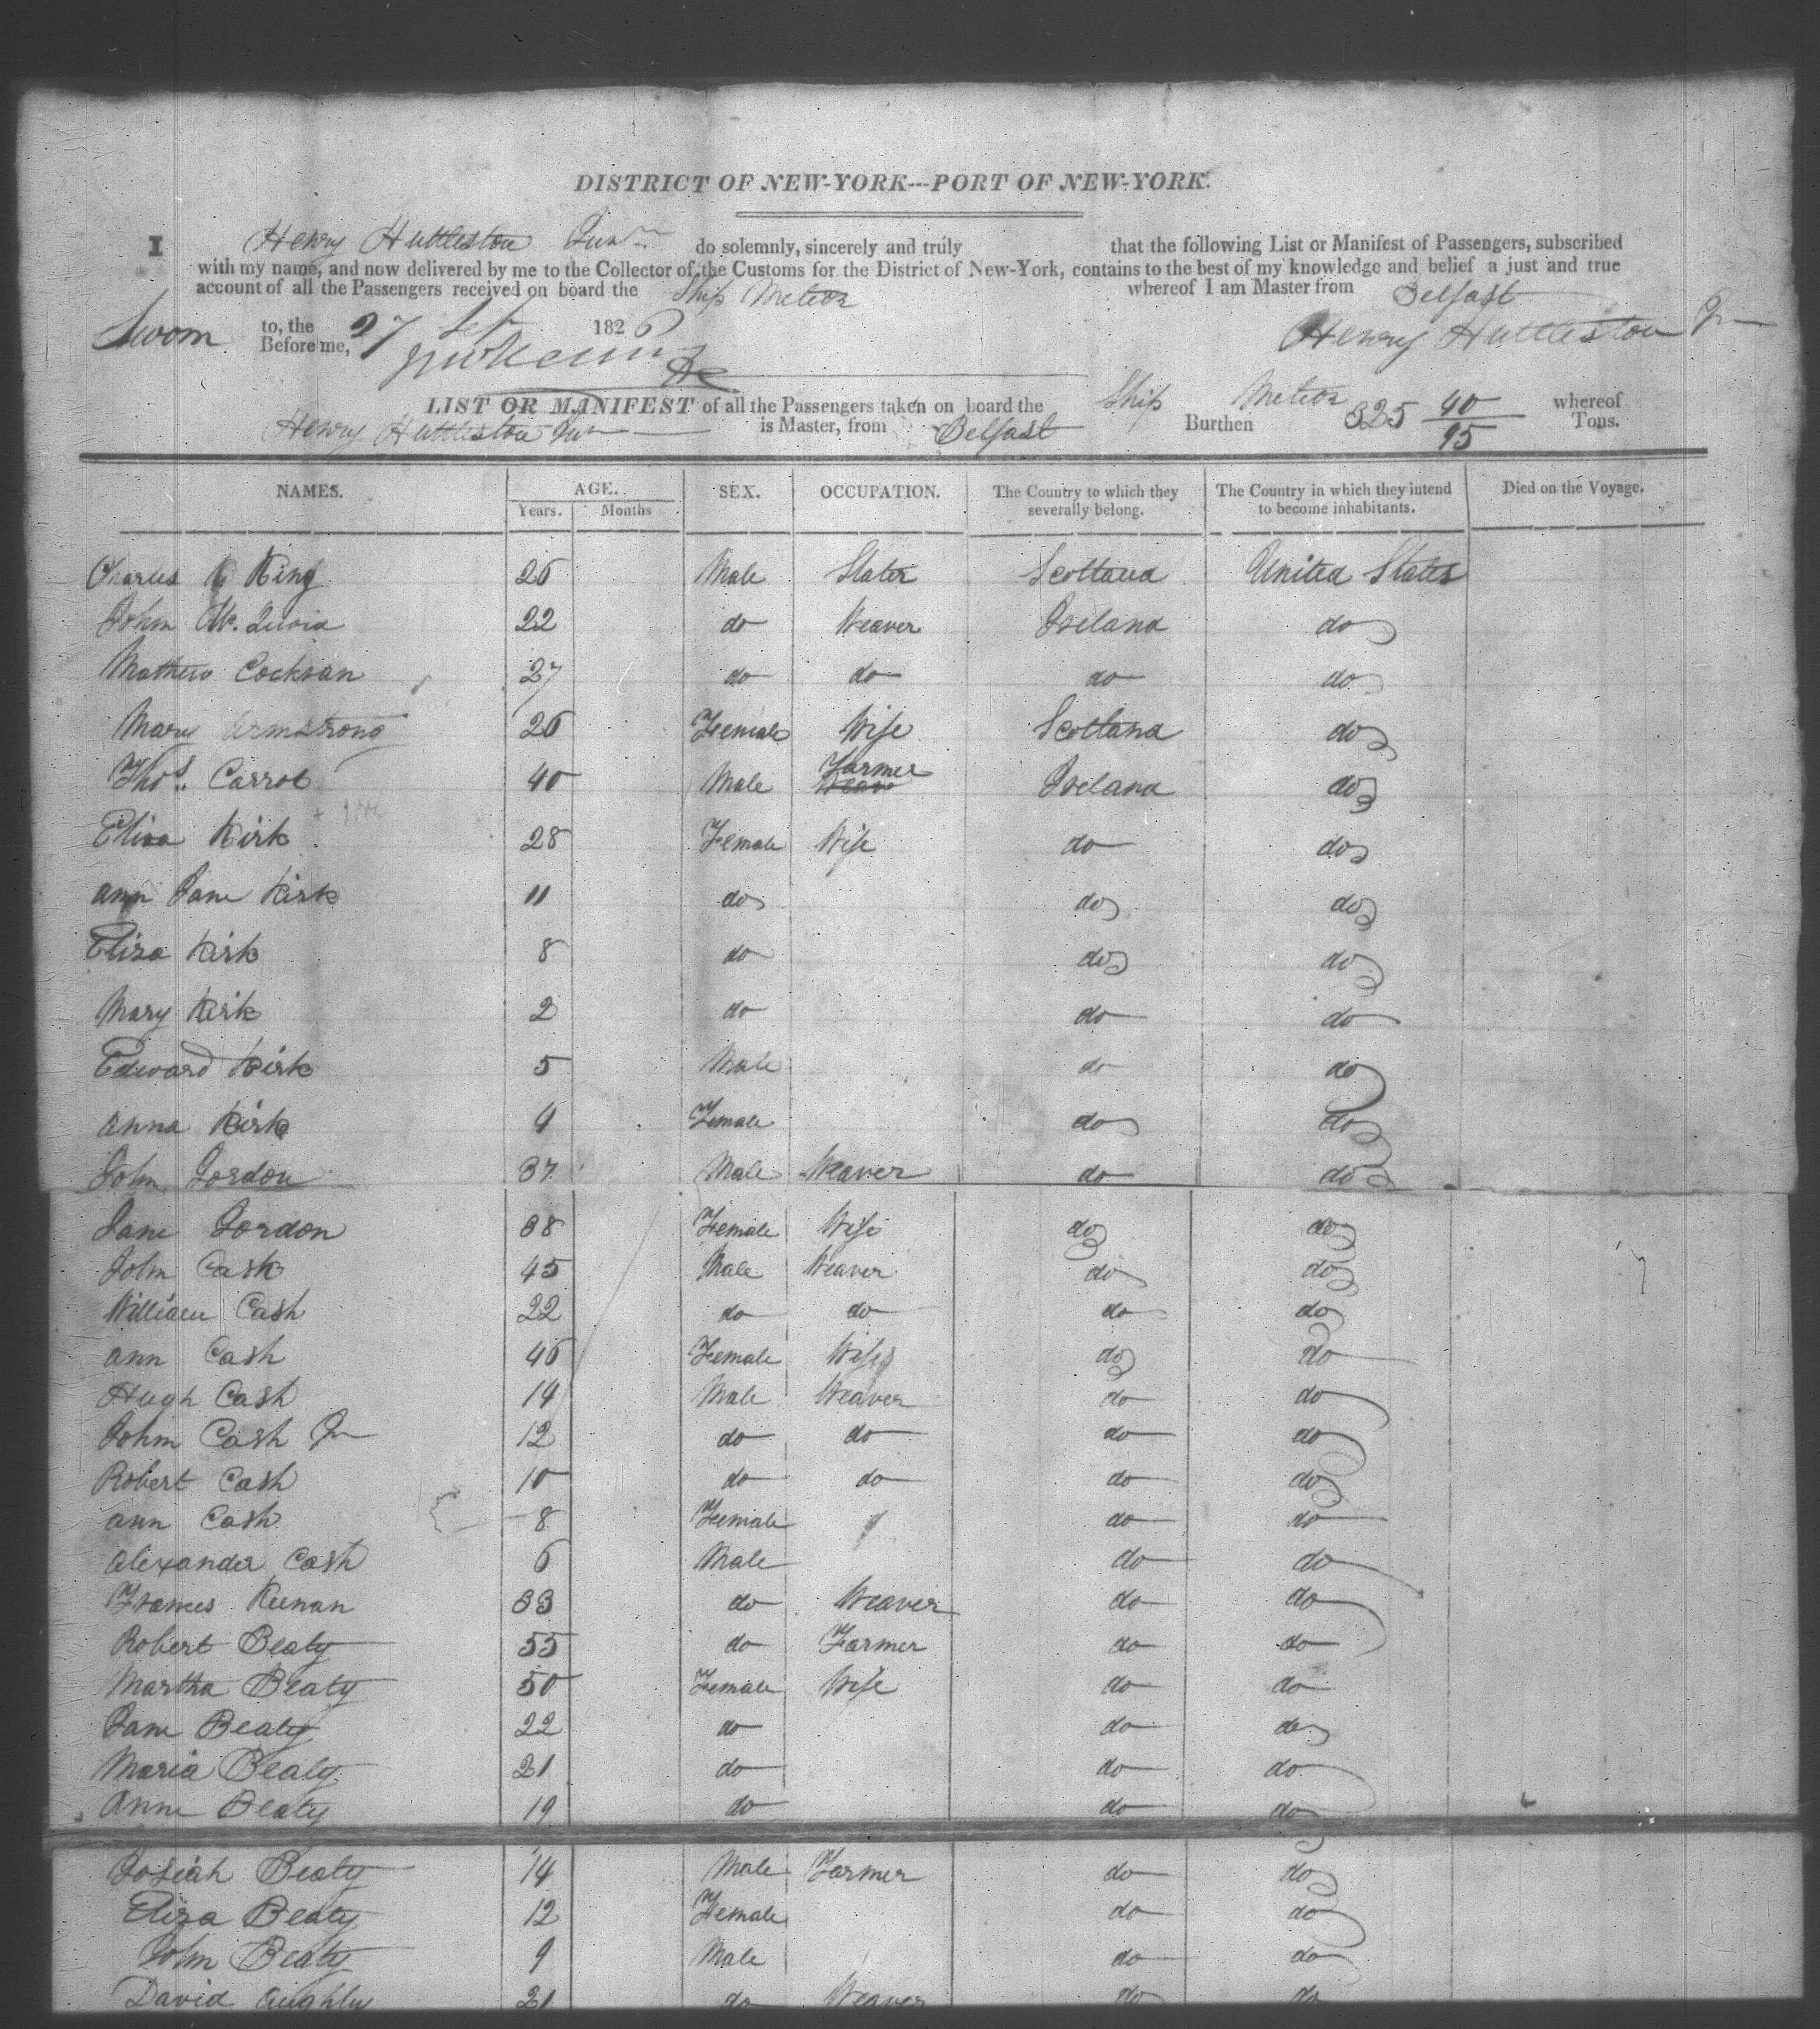 DISTRICT OF NEW-YORK---PORT OF NEW-YORK.
I Henry Huttleston Junr do solemnly, sincerely and truly that the following List or Manifest of Passengers, subscribed
with my name, and now delivered by me to the Collector of the Customs for the District of New-York, contains to the best of my knowledge and belief a just and true
account of all the Passengers received on board the Ship Meteor whereof I am Master from Belfast
Sworn to, the 27 Sep 1826 Henry Huttleston Jr
Before me,
LIST OR MANIFEST of all the Passengers taken on board the Ship Meteor whereof
Henry Huttleston Jun is Master, from Belfast Burthen 325 40/95 Tons.
NAMES. AGE. SEX. OCCUPATION. The Country to which they severally belong. The Country in which they intend to become inhabitants. Died on the Voyage.
Years. Months
Charles King 26 Male Slater Scotland United States
John Mc. 22 do Weaver Ireland do
Mathew Cockran 27 do do do do
Mary Armstrong 26 Female Wife Scotland do
Thos. Carrol 40 Male Farmer Ireland do
Eliza Kirk 28 Female Wife do do
Ann Jane Kirk 11 do do do
Eliza Kirk 8 do do do
Mary Kirk 2 do do do
Edward Kirk 5 Male do do
Anna Kirk 4 Female do do
John Gordon 37 Male Weaver do do
Jane Gordon 38 Female Wife do do
John Cash 45 Male Weaver do do
William Cash 22 do do do do
Ann Cash 46 Female Wife do do
Hugh Cash 14 Male Weaver do do
John Cash Jr 12 do do do do
Robert Cash 10 do do do do
Ann Cash 8 Female do do
Alexander Cash 6 Male do do
Frances Keenan 33 do Weaver do do
Robert Beaty 55 do Farmer do do
Martha Beaty 50 Female Wife do do
Jane Beaty 22 do do do
Maria Beaty 21 do do do
Anne Beaty 19 do do do
Josiah Beaty 14 Male Farmer do do
Eliza Beaty 12 Female do do
John Beaty 9 Male do do
David 21 do Weaver do do